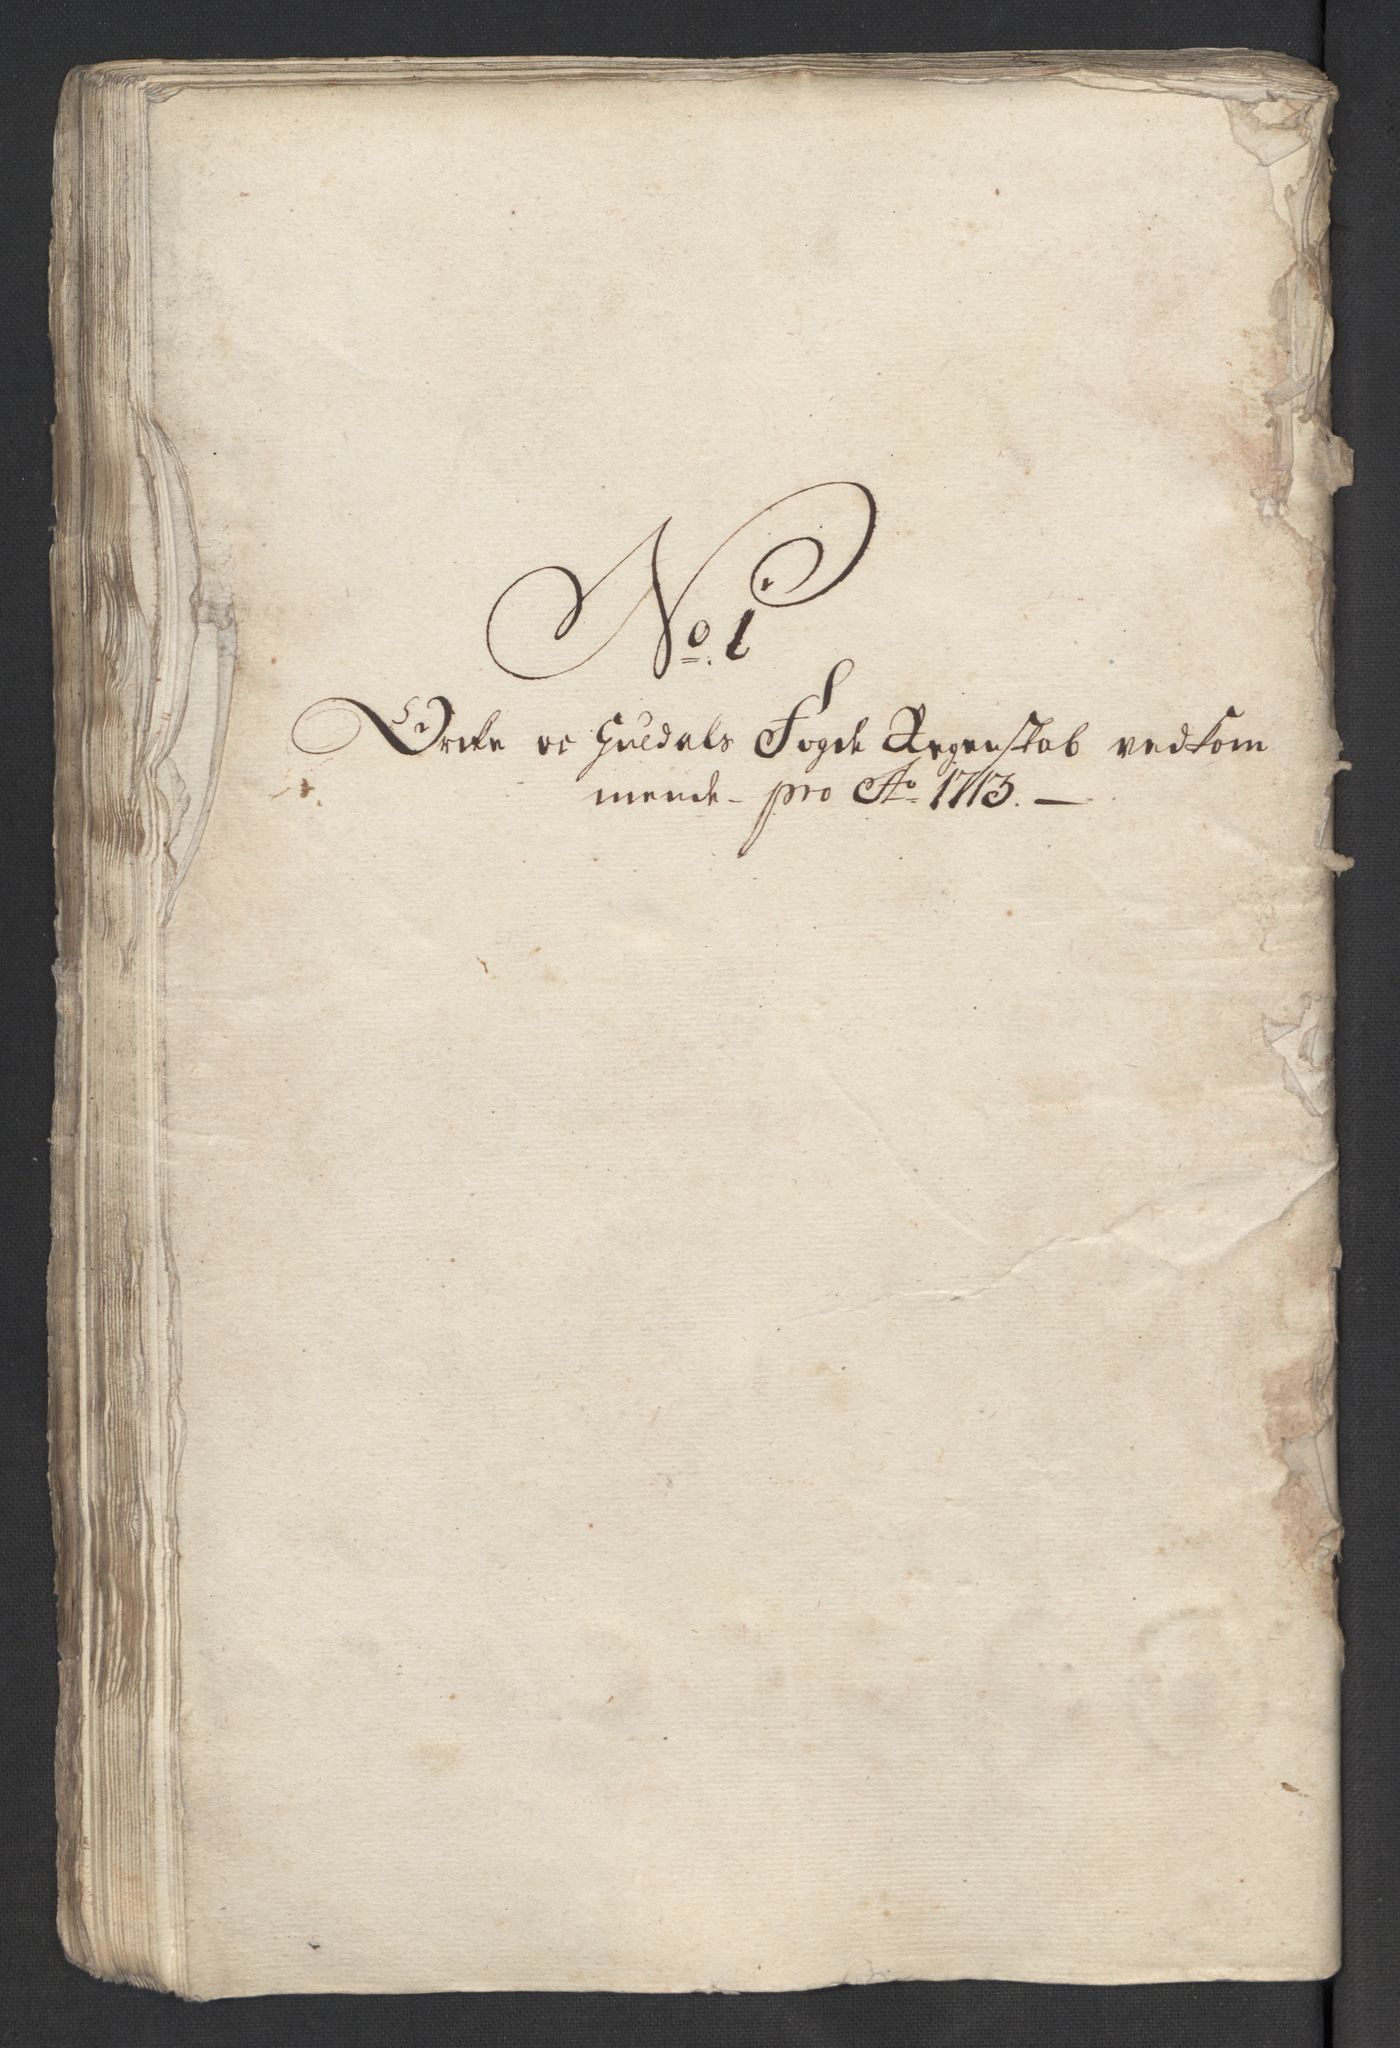 No. 1
Orche oc Guldals Fogde Regenskab vedkom
mende - pro Ao 1713. —